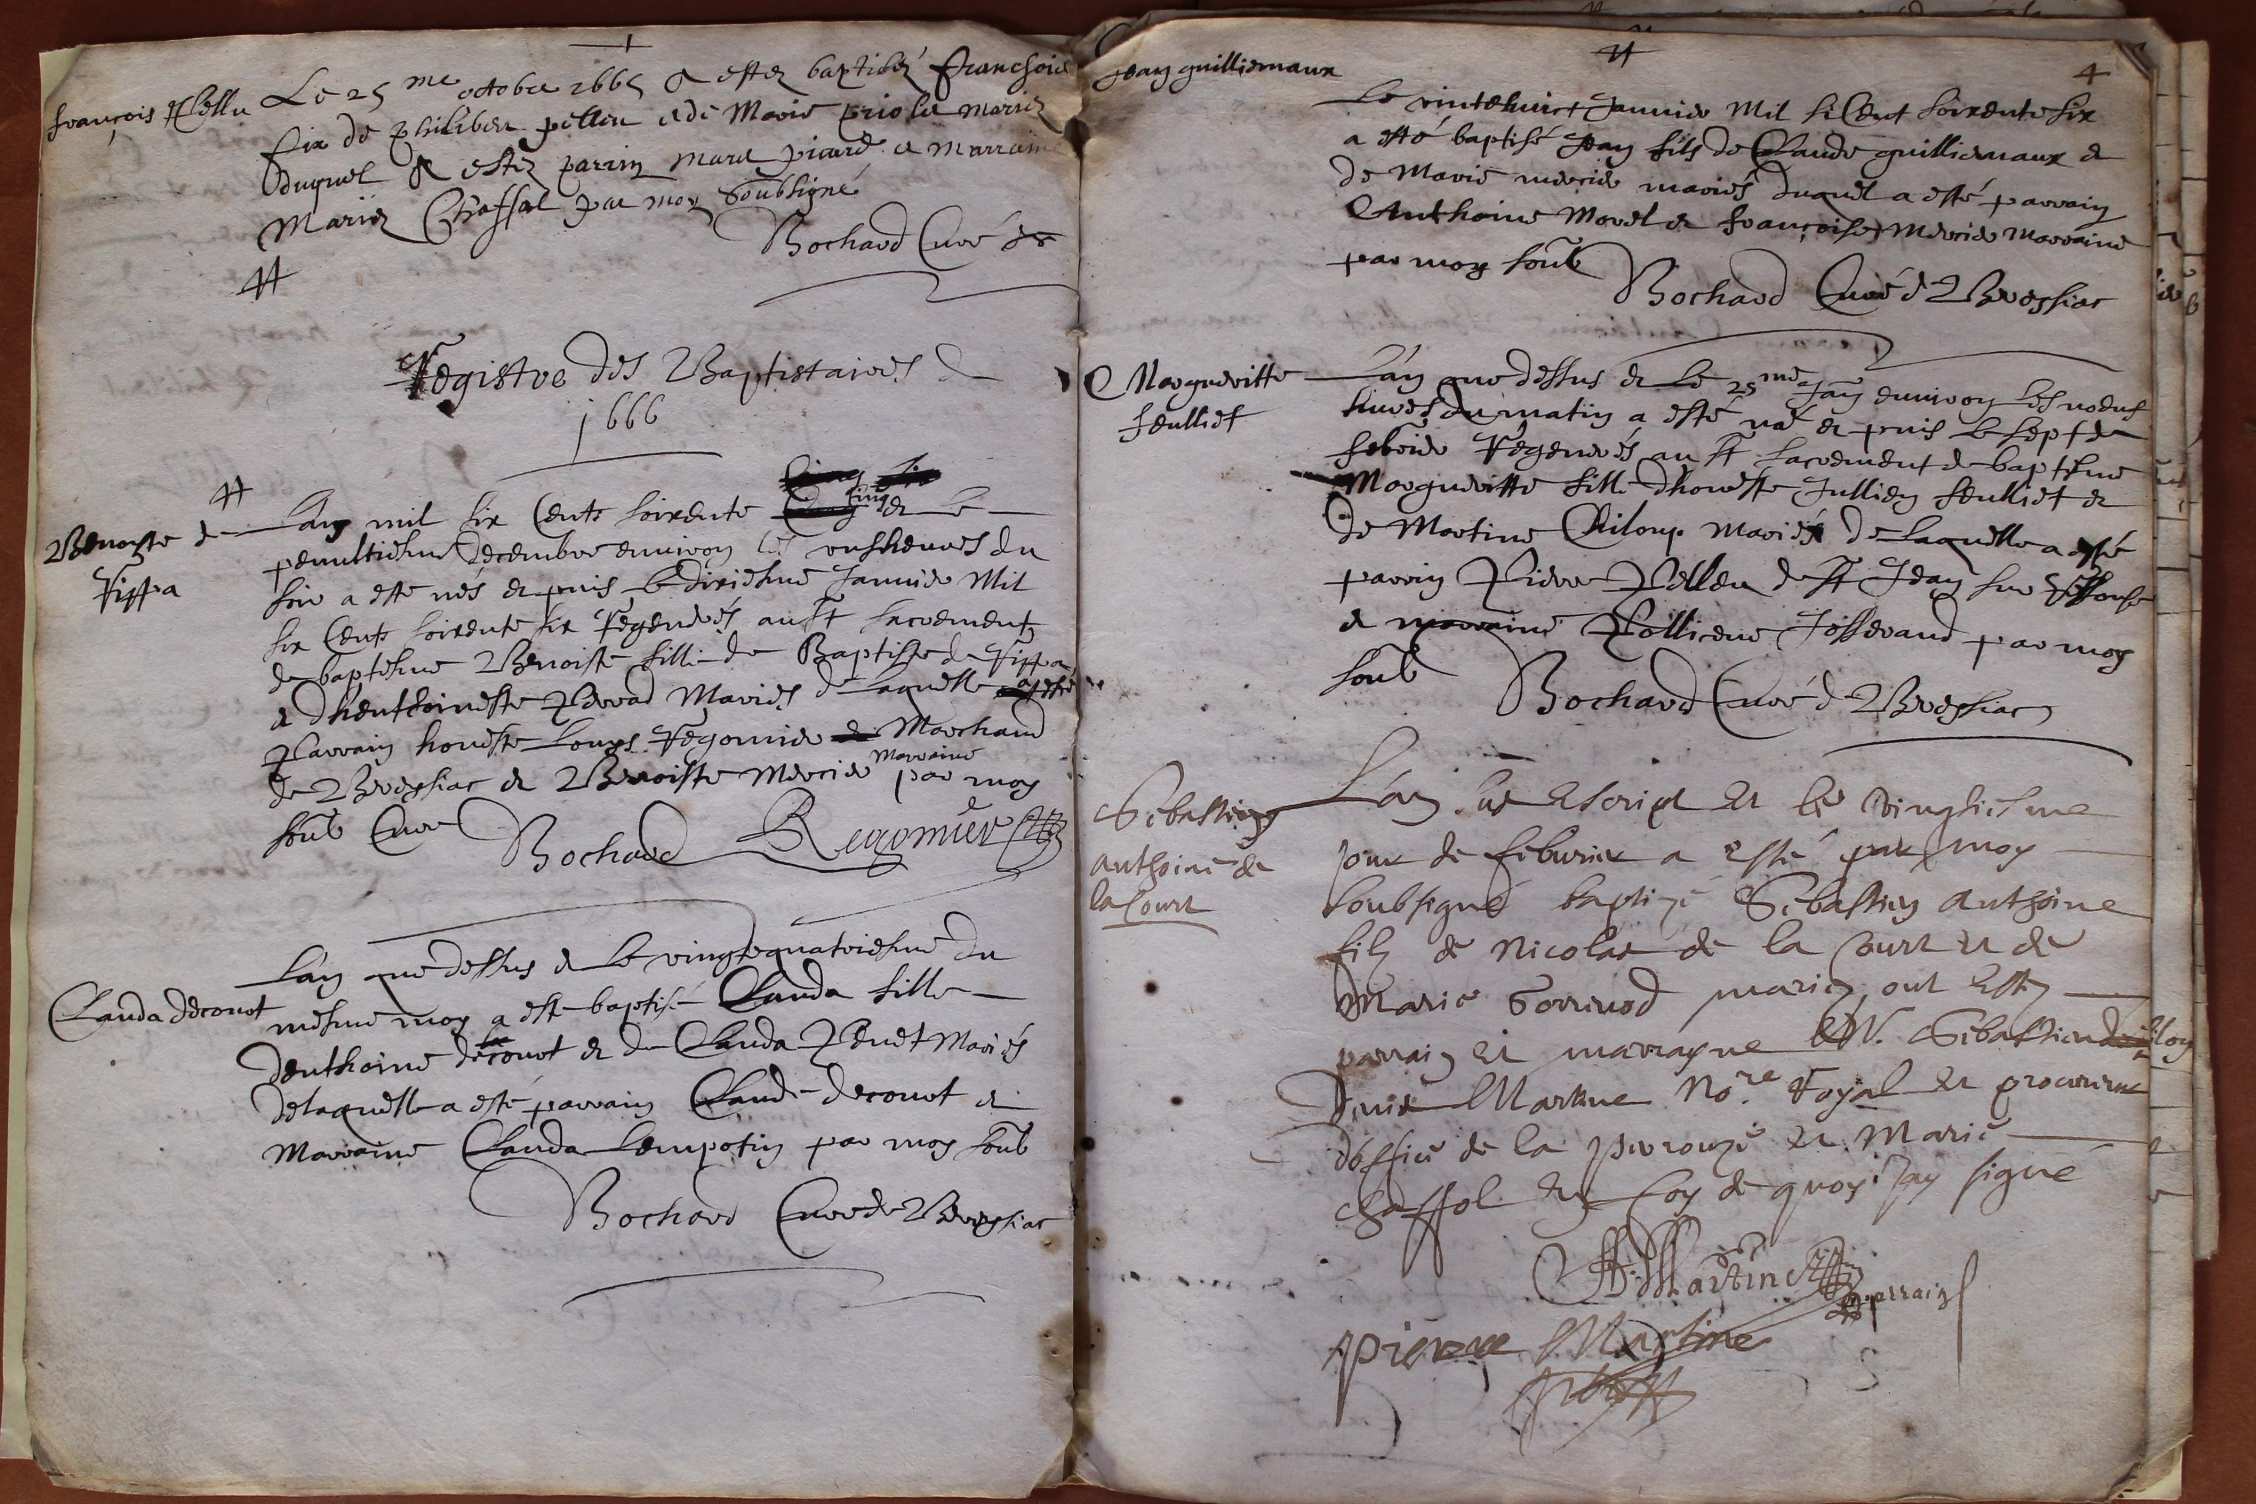 françois pellu
Le 25 me octobre 1665 a estez baptizéz françois
fix de philiber pellu e de Marie priola mariez
duquel a estez parrin Marc picard e marraine
Mariez Chaffal par moy soubsigné
Bochard Curé
Registre des Baptistaires de
1666
Benoiste de
Rippa
L'an mil six Cents soixente cinq et le
penultiesme decembre environ les unsheures du
soir a esté nés et puis le dixiesme Janvier Mil
six Cents soixente six Regenerés au st sacrement
de baptesme Benoiste fille de Baptiste de Rippa
e dhenthoineste Perrad Mariés de laquelle a esté
Parrain honeste Louys Regomier Marchand
de Bressiac et Benoiste Mercier Marraine par moy
soub Curé
Bochard Regomier
Clauda decrouot
L'an que dessus e le vingtequatriesme du
mesme moy a esté baptisé Clauda fille
denthoine decrouot et de Clauda Penet Mariés
delaquelle a esté parrain Claude decrouot et
Marraine Clauda Lempotin par moy soub
Bochard Curé de Bressiac
4
Jean guilliemaux
Le vintehuict Janvier Mil si Cent soixente six
a esté baptisé Jean fils de Claude guilliemaux e
de Marie mercier mariés duquel a esté parrain
Anthoine Morel et françoise Mercier Marraine
par moy soub
Bochard Curé d Bressiac
Margueritte
feulliet
L'an que dessus et le 25 me Jan environ les noeuf
heures du matin a esté né et puis le sept de
febvrier Regenerés au st sacrement de baptesme
Margueritte fille dhoneste Jullien feulliet et
de Martine Chiloup Mariés de laquelle a esté
parrin Pierre Pelleu de st Jean sur Reissouse
e marraine Pollicene Josserand par moy
soub
Bochard Curé d Bressiac
Sebastien
Anthoine de
la Court
L'an sus Escript Et le vingtiesme
jour de feburier a Esté par moy
soubsigné baptizé Sebastien Anthoine
filz de Nicolas de la Court et de
Marie mariez, ont Estez
parrain Et marrayne Sebastien
Denis Martine No.re Royal Et procureur
d'office de la Perrouze Et Marie
Chaffol En foy de quoy j'ay signé
Martine parrain
Pierre Martine